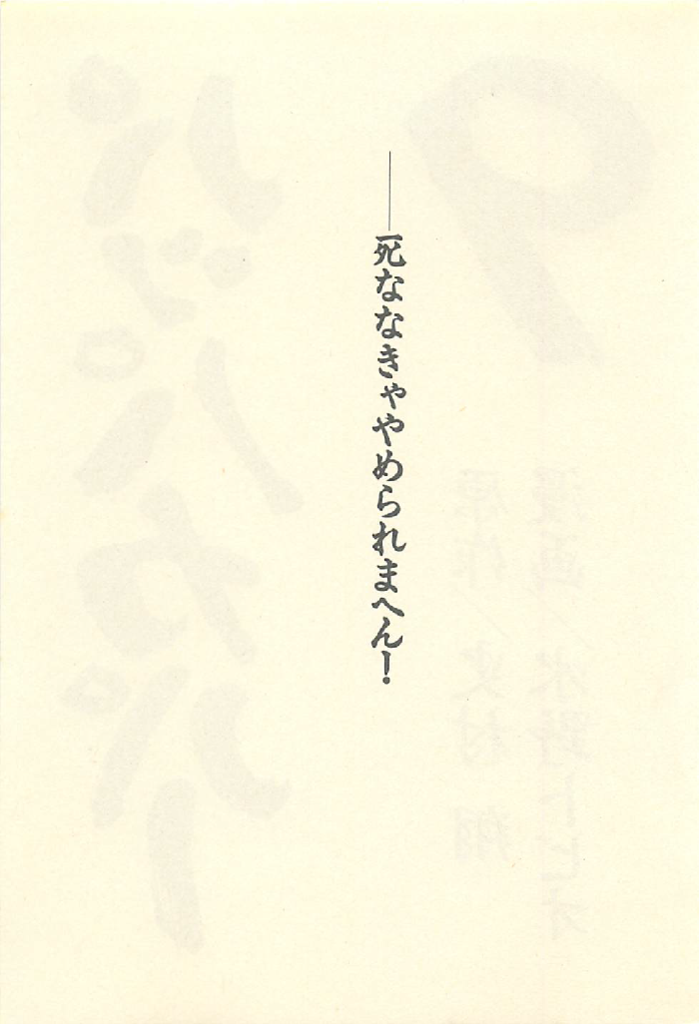 ──死ななきゃやめられまへん！